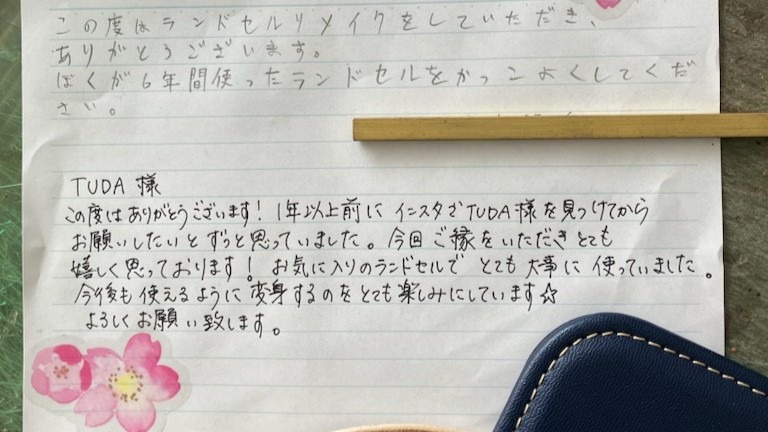 この度はランドセルリメイクをしていただき、
ありがとうございます。
ぼくが6年間使ったランドセルをかっこよくしてくだ
さい。
TUDA 様
この度はありがとうございます！1年以上前に インスタでTUDA様を見つけてから
お願いしたいと ずっと思っていました。今回ご縁をいただきとても
嬉しく思っております！お気に入りのランドセルで とても 大事に 使っていました。
今後も使えるように変身するのをとても楽しみにしています☆
よろしくお願い致します。